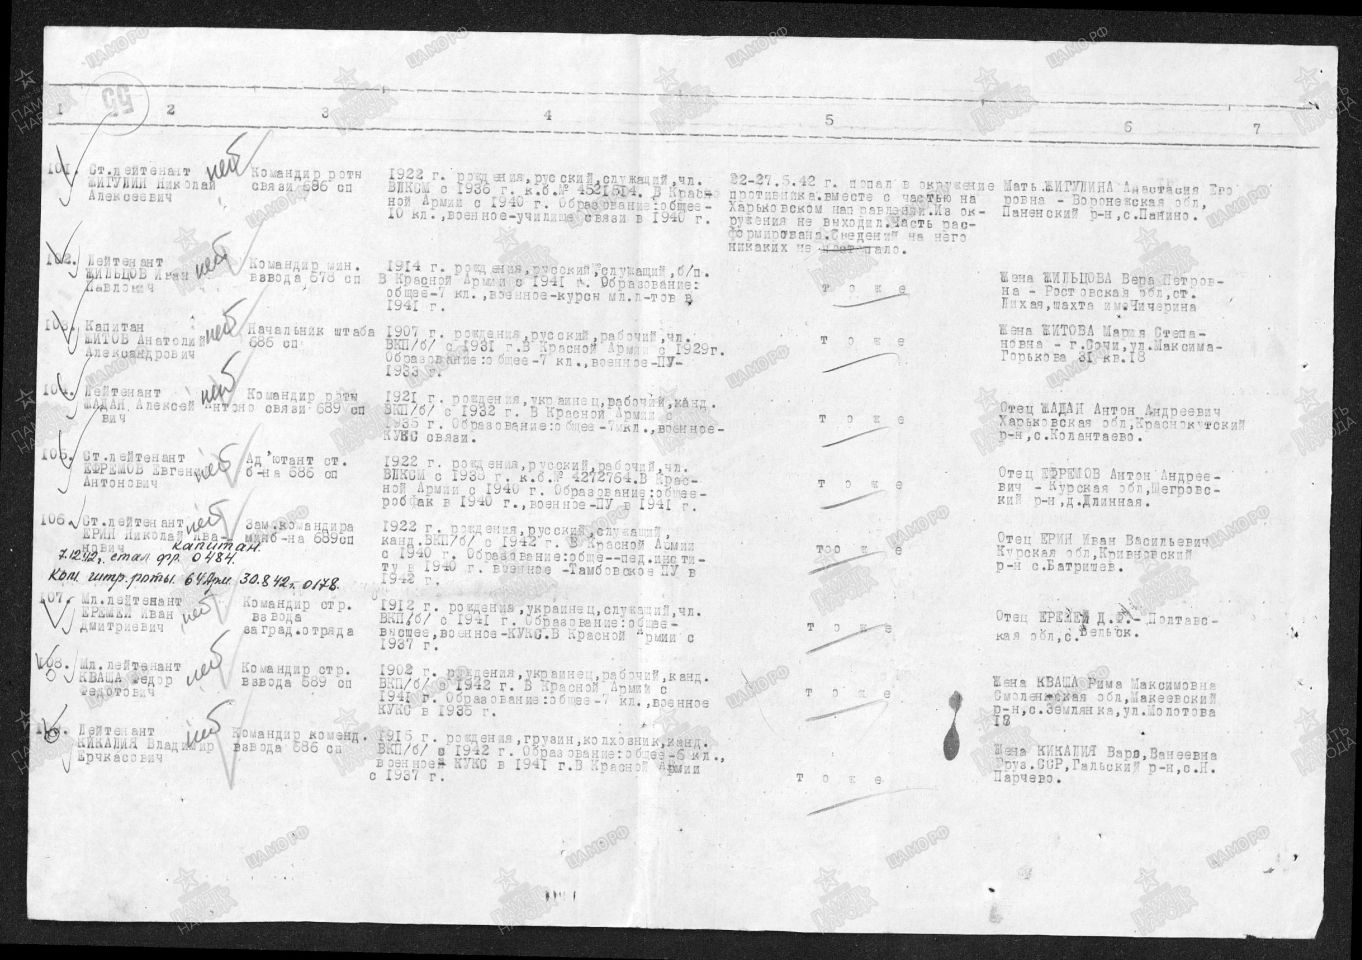 55
1 2 3 4 5 6 7
101. Ст.лейтенант
ЖИГУЛИН Николай
Алексеевич
Командир роты
связи 686 сп
1922 г. рождения,русский,служащий,чл.
ВЛКСМ с 1936 г. к.б.№ 4521514. В Красно
ной Армии с 1940 г. Образование:общее-
10 кл.,военное-училище связи в 1940 г.
22-27.5.42 г. попал в окружение
противника.вместе с частью на
Харьковском направлении.Из ок-
ружения не выходил.Часть рас-
формирована.Сведений на него
никаких не поступало.
Мать.ЖИГУЛИНА Анастасия Его
ровна - Воронежская обл,
Паненский р-н,с.Панино.
102. Лейтенант
ЖИЛЬЦОВ Иван
Павлович
Командир мин.
взвода 678 сп
1914 г. рождения,русский,служащий,б/п.
В Красной Армии с 1941 г. Образование:
общее-7 кл.,военное-курсы мл.л-тов в
1941 г.
т о ж е
Жена ЖИЛЬЦОВА Вера Петров-
на - Ростовская обл,ст.
Лихая,шахта им.Чичерина
103. Капитан
ЖИТОВ Анатолий
Александрович
Начальник штаба
686 сп
1907 г. рождения,русский,рабочий,чл.
ВКП/б/ с 1931 г.В Красной Армии с 1929г.
Образование:общее-7 кл.,военное-ПУ-
1933 г.
т о ж е
Жена ЖИТОВА Мария Степа-
новна - г.Сочи,ул.Максима-
Горькова 31 кв.18
104. Лейтенант
ЖАДАН Алексей Антоно
вич
Командир роты
связи 689 сп
1921 г. рождения,украинец,рабочий,канд.
ВКП/б/ с 1932 г. В Красной Армии с
1935 г. Образование:общее-7мкл.,военное-
КУКС связи.
т о ж е
Отец ЖАДАН Антон Андреевич
Харьковская обл,Краснокутский
р-н,с.Колантаево.
105. Ст.лейтенант
ЕФРЕМОВ Евгений
Антонович
Ад'ютант ст.
б-на 686 сп
1922 г. рождения,русский,рабочий,чл.
ВЛКСМ с 1935 г. к.б.№ 4272764.В Крас-
ной Армии с 1940 г. Образование:общее-
робфак в 1940 г.,военное-ПУ в 1941 г.
т о ж е
Отец ЕФРЕМОВ Антон Андрее-
вич - Курская обл,Щегровс-
кий р-н,д.Длинная.
106. Ст.лейтенант
ЕРИН Николай Ива-
нович
Зам.командира
минб-на 689сп
капитан.
7.12.42г. стал фр. 0484.
Ком. штр.роты 64Арм 30.8.42г. 0178.
1922 г. рождения,русский,служащий,
канд.ВКП/б/ с 1942 г. В Красной Армии
с 1940 г. Образование:обще--пед.инсти-
ту в 1940 г. военное -Тамбовское ПУ в
1942 г.
тоо ж е
Отец ЕРИН Иван Васильевич
Курская обл,Кривновский
р-н с.Батрищев.
107. Мл.лейтенант
ЕРЕМЕЙ Иван
Дмитриевич
Командир стр.
взвода
заград.отряда
1912 г. рождения,украинец,служащий,чл.
ВКП/б/ с 1941 г. Образование:общее-
высшее,военное-КУКС.В Красной Армии с
1937 г.
т о ж е
Отец ЕРЕМЕЙ Д.Ф.- Полтавс-
кая обл,с.Вельск.
108. Мл.лейтенант
КВАША Федор
Федотович
Командир стр.
взвода 689 сп
1902 г. рождения,украинец,рабочий,канд.
ВКП/б/ с 1942 г. В Красной Армии с
1941 г. Образование:общее-7 кл.,военное
КУКС в 1935 г.
т о ж е
Жена КВАША Рима Максимовна
Смоленская обл,Макеевский
р-н,с.Землянка,ул.Молотова
18
109. Лейтенант
КИКАЛИЯ Владимир
Ерчкасович
Командир коменд.
взвода 686 сп
1915 г. рождения,грузин,колхозник,канд.
ВКП/б/ с 1942 г. Образование:общее-6 кл.,
военное- КУКС в 1941 г.В Красной Армии
с 1937 г.
т о ж е
Жена КИКАЛИЯ Варя,Ванеевна
Груз.ССР,Гальский р-н,с.Н.
Парчево.